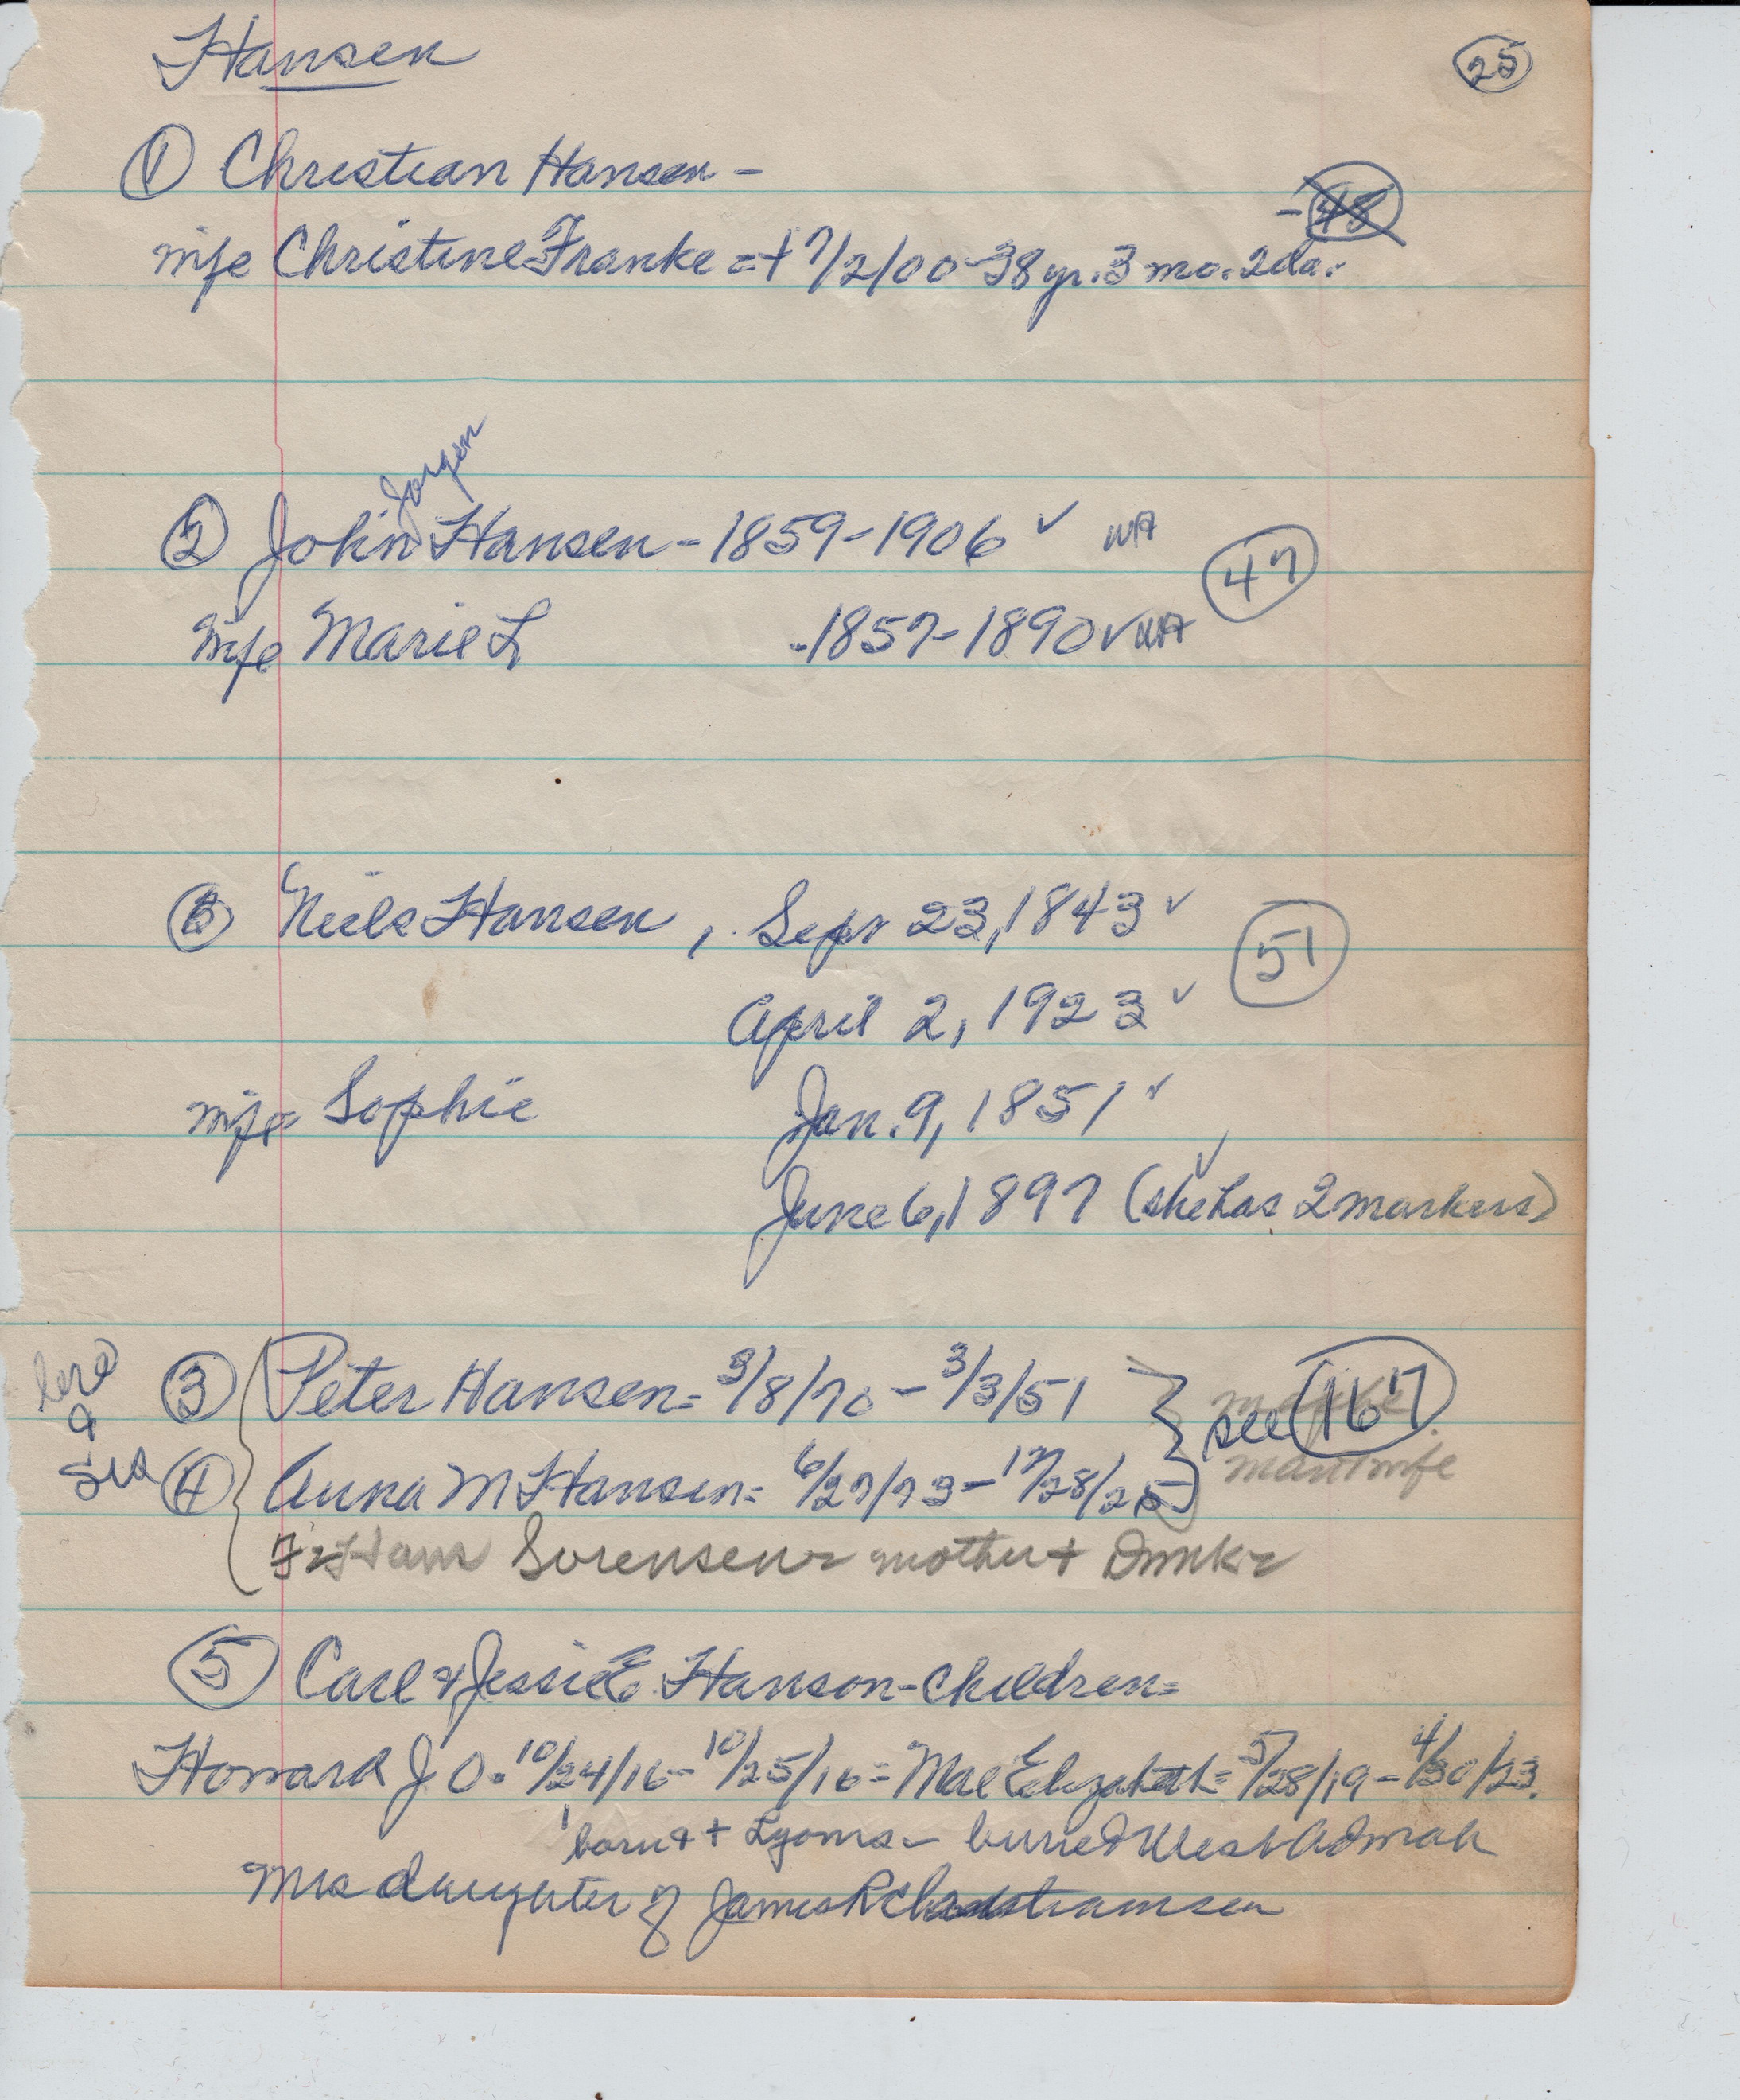 Hansen
25
① Christian Hansen -
- 48
wife Christine Franke = + 7/2/00 - 38 yr. 3 mo. 2 da.
Jorgen
② John Hansen - 1859 - 1906 ✓ WA
47
wife Marie L - 1857 - 1890 ✓ WA
⑥ Niels Hansen, Sept 23, 1843 ✓
51
April 2, 1923 ✓
wife Sophie Jan. 9, 1851 ✓
June 6, 1897 (she has 2 markers) ✓
③ Peter Hansen = 3/8/70 - 3/3/51 see 167
&
Sis
④ Anna M Hansen = 6/27/73 - 12/28/25
man & wife
Hans Sorensens mother +
⑤ Carl & Jessie E. Hanson - children =
Howard J O. 10/24/16 - 10/25/16 = Mae Elizabeth = 5/28/19 - 4/30/23.
born & + Lyons - buried West Admah
Mrs daughter of James R Christiansen